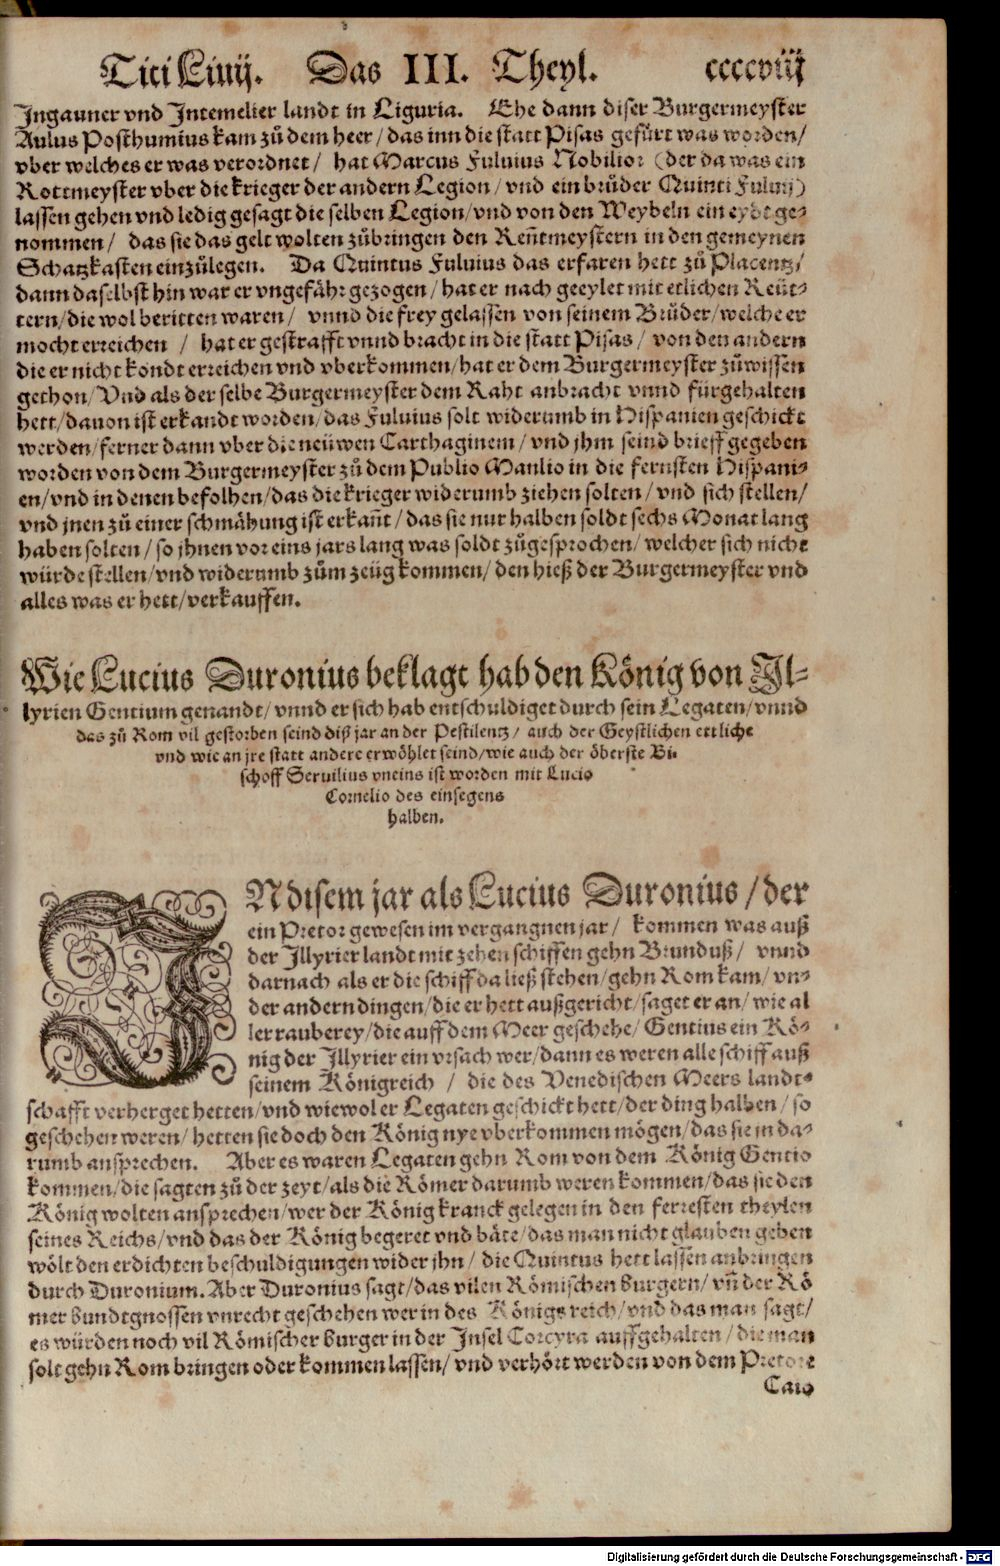 Titi Liuij. Das III. Theyl. ccccviij
Ingauner vnd Intemelier landt in Liguria. Ehe dann diser Burgermeyster
Aulus Posthumius kam zů dem heer / das inn die statt Pisas gefürt was worden /
vber welches er was verordnet / hat Marcus Fuluius Nobilior (der da was ein
Rottmeyster vber die krieger der andern Legion / vnd ein brůder Quinti Fuluij)
lassen gehen vnd ledig gesagt die selben Legion / vnd von den Weybeln ein eydt ge-
nommen / das sie das gelt wolten zůbringen den Reñtmeystern in den gemeynen
Schatzkasten einzůlegen. Da Quintus Fuluius das erfaren hett zů Placentz /
dann daselbst hin war er vngefähr gezogen / hat er nach geeylet mit etlichen Reüt-
tern / die wol beritten waren / vnnd die frey gelassen von seinem Brůder / welche er
mocht erreichen / hat er gestrafft vnnd bracht in die statt Pisas / von den andern
die er nicht kondt erreichen vnd vberkommen / hat er dem Burgermeyster zůwissen
gethon / Vnd als der selbe Burgermeyster dem Raht anbracht vnnd fürgehalten
hett / dauon ist erkandt worden / das Fuluius solt widerumb in Hispanien geschickt
werden / ferner dann vber die neüwen Carthaginem / vnd jhm seind brieff gegeben
worden von dem Burgermeyster zů dem Publio Manlio in die fernsten Hispani-
en / vnd in denen befolhen / das die krieger widerumb ziehen solten / vnd sich stellen /
vnd jnen zů einer schmähung ist erkañt / das sie nur halben soldt sechs Monat lang
haben solten / so jhnen vor eins jars lang was soldt zůgesprochen / welcher sich nicht
würde stellen / vnd widerumb zům zeüg kommen / den hieß der Burgermeyster vnd
alles was er hett / verkauffen.
Wie Lucius Duronius beklagt hab den König von Il-
lyrien Gentium genandt / vnnd er sich hab entschuldiget durch sein Legaten / vnnd
das zů Rom vil gestorben seind diß jar an der Pestilentz / auch der Geystlichen ettliche
vnd wie an jre statt andere erwöhlet seind / wie auch der öberste Bi-
schoff Seruilius vneins ist worden mit Lucio
Cornelio des einsegens
halben.
IN disem jar als Lucius Duronius / der
ein Pretor gewesen im vergangnen jar / kommen was auß
der Illyrier landt mit zehen schiffen gehn Brunduß / vnnd
darnach als er die schiff da ließ stehen / gehn Rom kam / vn-
der andern dingen / die er hett außgericht / saget er an / wie al
ler rauberey / die auff dem Meer geschehe / Gentius ein Kö-
nig der Illyrier ein vrsach wer / dann es weren alle schiff auß
seinem Königreich / die des Venedischen Meers landt-
schafft verherget hetten / vnd wiewol er Legaten geschickt hett / der ding halben / so
geschehen weren / hetten sie doch den König nye vberkommen mögen / das sie jn da-
rumb ansprechen. Aber es waren Legaten gehn Rom von dem König Gentio
kommen / die sagten zů der zeyt / als die Römer darumb weren kommen / das sie den
König wolten ansprechen / wer der König kranck gelegen in den ferresten theylen
seines Reichs / vnd das der König begeret vnd bäte / das man nicht glauben geben
wölt den erdichten beschuldigungen wider jhn / die Quintus hett lassen anbringen
durch Duronium. Aber Duronius sagt / das vilen Römischen burgern / vñ der Rö
mer bundtgnossen vnrecht geschehen wer in des Königs reich / vnd das man sagt /
es würden noch vil Römischer burger in der Insel Corcyra auffgehalten / die man
solt gehn Rom bringen oder kommen lassen / vnd verhört werden von dem Pretore
Caio
Digitalisierung gefördert durch die Deutsche Forschungsgemeinschaft - DFG